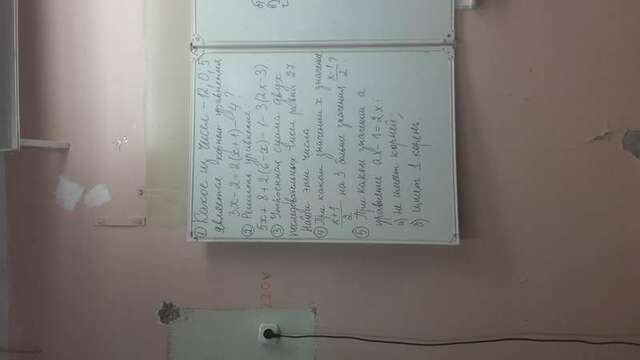 ① Какое из чисел -12, 0, 5
является корнем уравнения
3x - 2 = 2(x+1) - 4?
② Решить уравнение:
5x + 8 + 2(6-x) = 1 - 3(2x-3)
③ Утроенная сумма двух
последовательных чисел равна 27
Найди эти числа
④ При каком значении x значение
x+1/2 на 3 больше значения x-1/2?
⑤ При каком значении a
уравнение ax - 1 = 2x:
а) не имеет корней;
б) имеет 1 корень.
220v